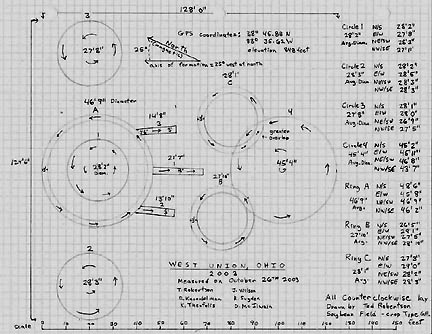 128' 0"
3
27'8"
25°
North
(magnetic)
GPS coordinates: 38° 45.88 N
83° 35.62 W
elevation 848 feet
axis of formation = 25° west of north
46'9" Diameter
A
14'8"
3
28'1"
C
4
greater
overlap
45'4"
1
28'2"
Diam.
21'7"
1
13'10"
2
27'10"
B
2
28'3"
WEST UNION, OHIO
2003
Measured on October 26TH 2003
T. Robertson J. Wilson
R. Sugden
D. McIlwain
scale
0 10 20 30 40 50 60 70 80 90 100 110 120 130 140 150 feet
Circle 1 N/S 28'2"
28'2" E/W
Avg. Diam NE/SW
NW/SE
Circle 2 N/S 28'2"
28'3" E/W 28'5"
Avg. Diam NE/SW
NW/SE 28'3"
Circle 3 N/S 28'1"
27'8" E/W 28'0"
Avg. Diam NE/SW 26'9"
NW/SE 27'5"
Circle 4 N/S 45'2"
45'4" E/W 45'11"
Avg. Diam NE/SW 46'8"
NW/SE 43'7"
Ring A N/S 48'6"
46'9" E/W 45'8"
Avg. NE/SW 46'9"
NW/SE 46'2"
Ring B N/S
27'10" E/W
Avg. NE/SW
NW/SE 28'10"
Ring C N/S 27'3"
28'1" E/W 29'0"
Avg. NE/SW 28'2"
NW/SE
All Counterclockwise lay
Drawn by Ted Robertson
Soybean Field - crop Type